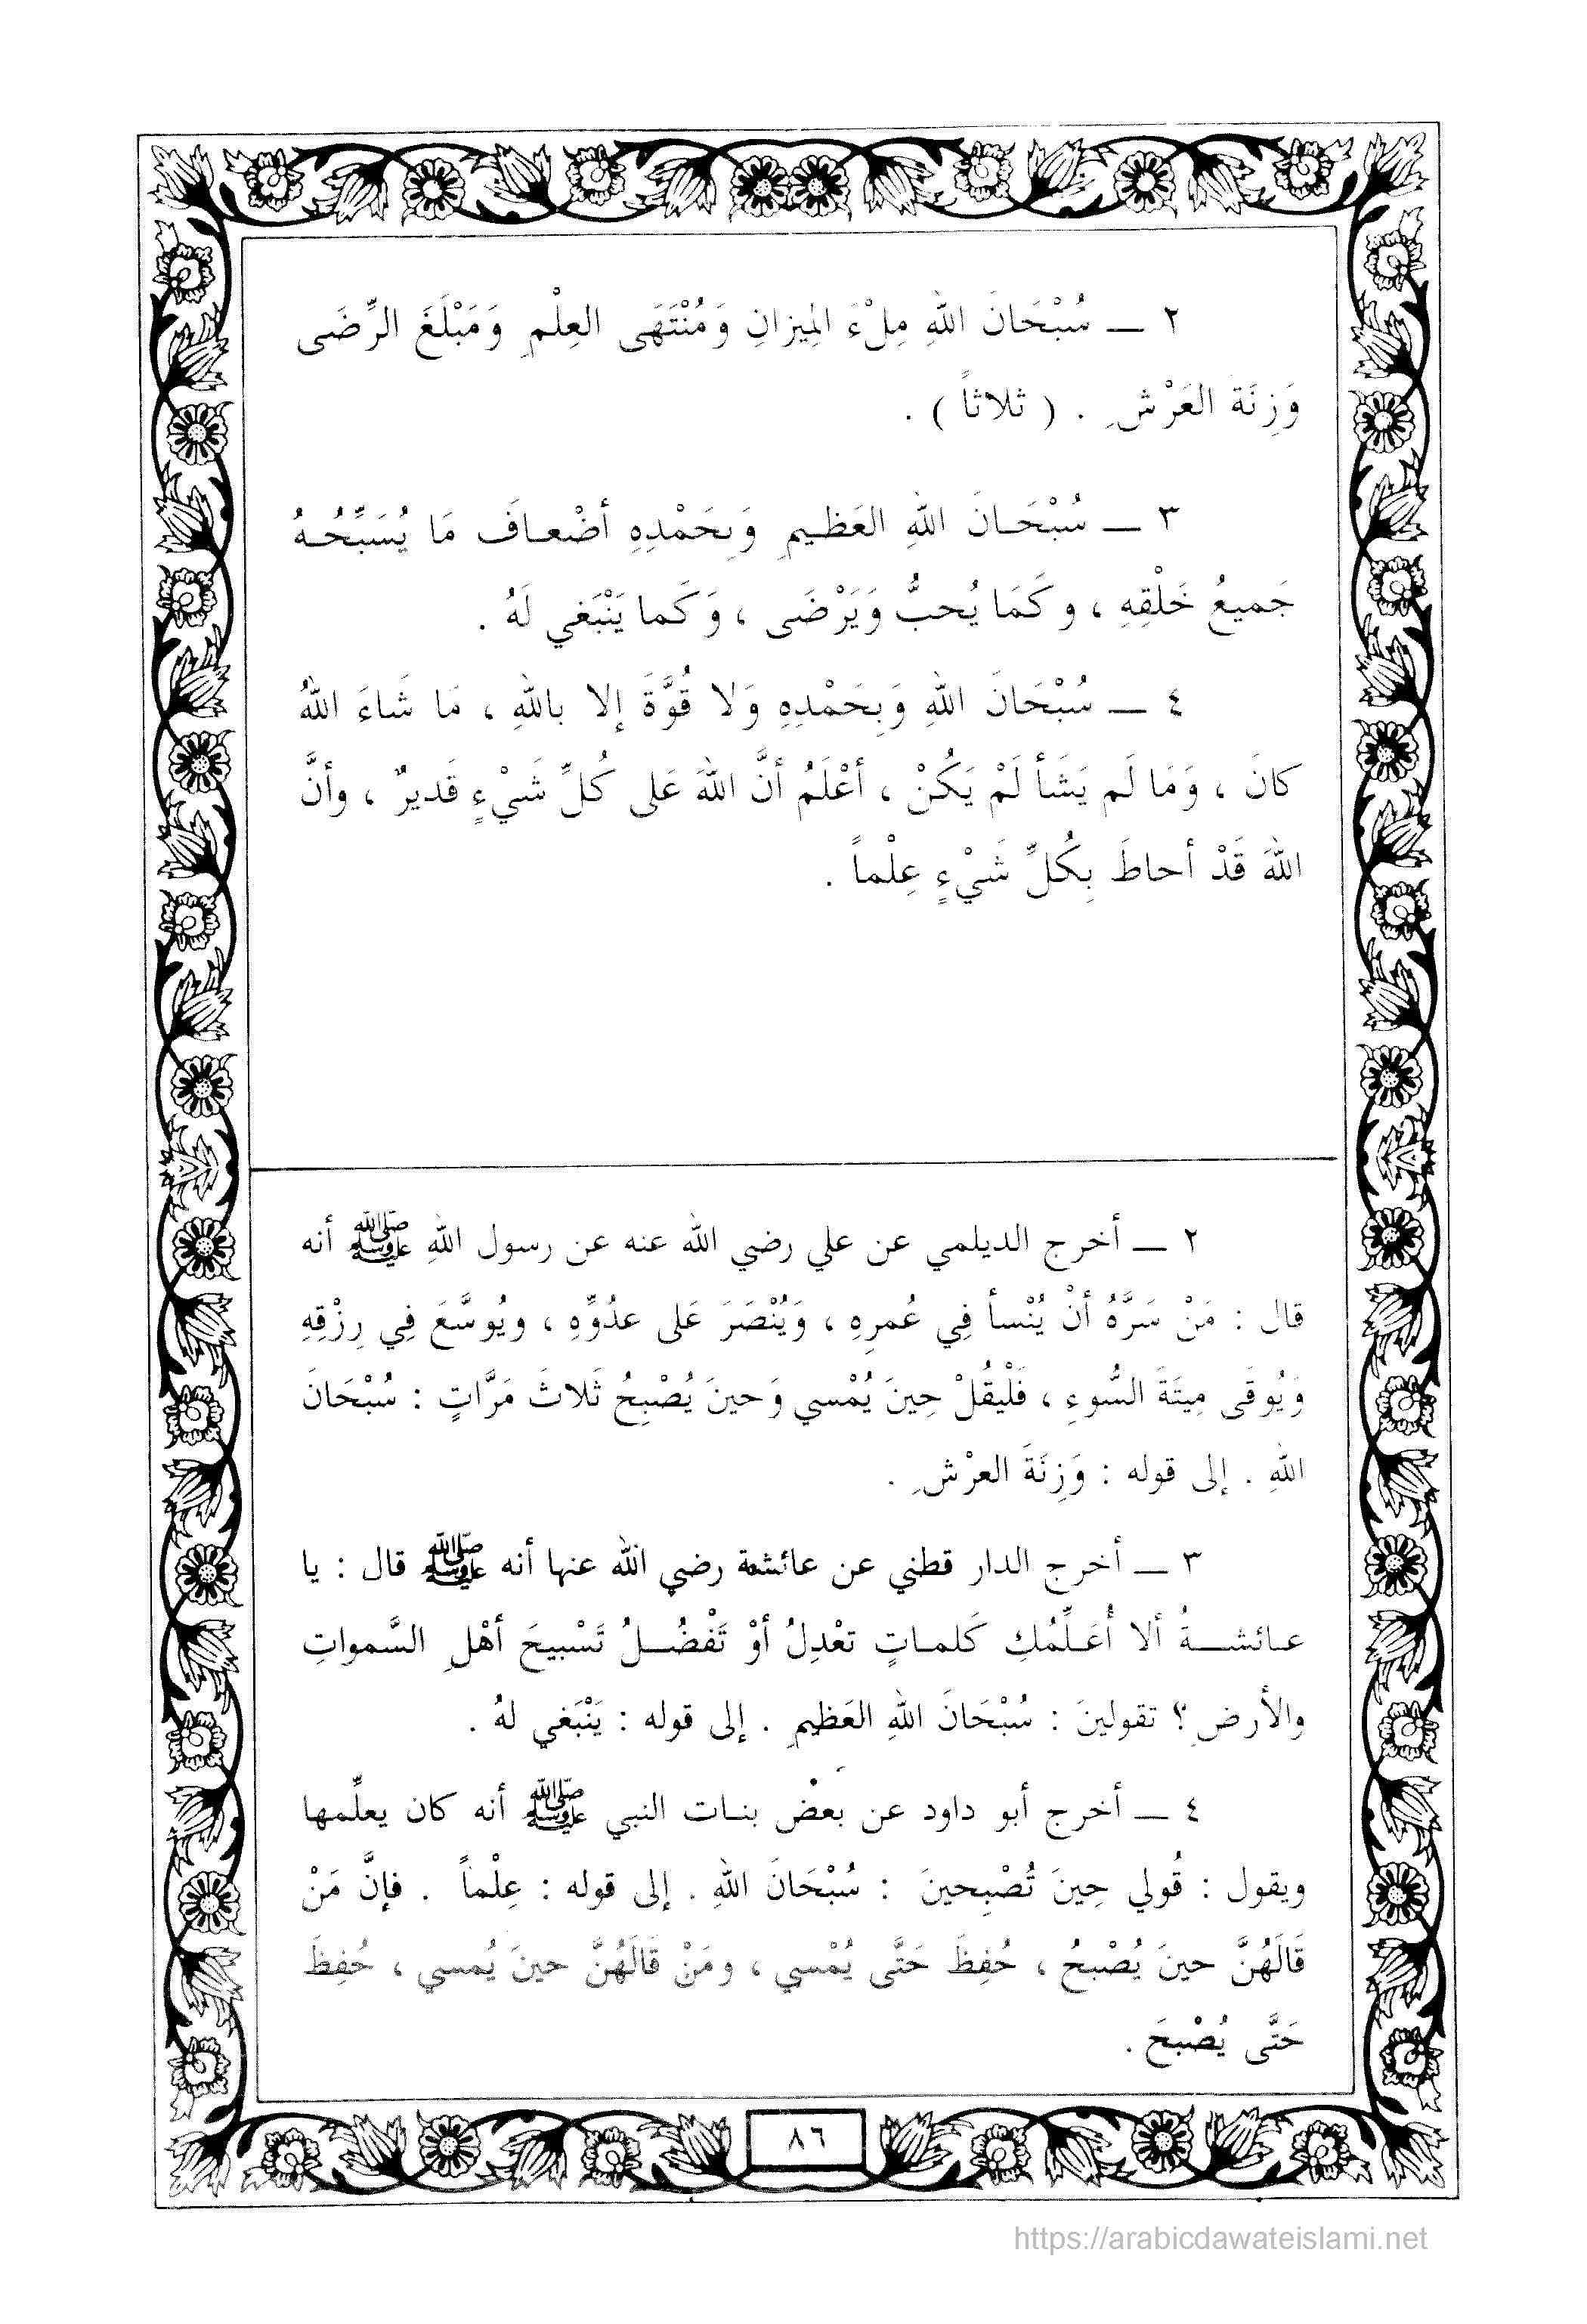 ٢ — سُبْحَانَ اللهِ مِلْءَ المِيزانِ وَمُنْتَهَى العِلْمِ وَمَبْلَغَ الرِّضَى
وَزِنَةَ العَرْشِ . ( ثلاثاً ) .
٣ — سُبْحَـانَ اللهِ العَظـيمِ وَبِحَمْدِهِ أضْعـافَ مَا يُسَبِّحُـهُ
جَميعُ خَلْقِهِ ، وكَمَا يُحبُّ وَيَرْضَى ، وَكَما يَنْبَغي لَهُ .
٤ — سُبْحَانَ اللهِ وَبِحَمْدِهِ وَلا قُوَّةَ إلا باللهِ ، مَا شَاءَ اللهُ
كانَ ، وَمَا لَم يَشَأ لَمْ يَكُنْ ، أعْلَمُ أنَّ اللهَ عَلى كُلِّ شَيْءٍ قَديرٌ ، وأنَّ
اللهَ قَدْ أحاطَ بِكُلِّ شَيْءٍ عِلْماً .
٢ — أخرج الديلمي عن علي رضي الله عنه عن رسول اللهِ ﷺ أنه
قال : مَنْ سَرَّهُ أنْ يُنْسأ فِي عُمرِهِ ، وَيُنْصَرَ عَلى عدُوِّهِ ، ويُوسَّعَ فِي رِزْقِهِ
وَيُوقَى مِيتَةَ السُّوءِ ، فَلْيقُلْ حِينَ يُمْسي وَحينَ يُصْبِحُ ثَلاثَ مَرَّاتٍ : سُبْحَانَ
اللهِ . إلى قوله : وَزِنَةَ العرْشِ .
٣ — أخرج الدار قطني عن عائشة رضي الله عنها أنه ﷺ قال : يا
عـائشـــةُ ألا أُعَـلِّمُكِ كَلمـاتٍ تعْدِلُ أوْ تَفْضُــلُ تَسْبيحَ أهْلِ السَّمواتِ
والأرضِ ؟ تقولينَ : سُبْحَانَ اللهِ العَظِيمِ . إلى قوله : يَنْبَغي لهُ .
٤ — أخرج أبو داود عن بعض بنـات النبي ﷺ أنه كان يعلِّمها
ويقول : قُولي حِينَ تُصْبِحينَ : سُبْحَانَ اللهِ . إلى قوله : عِلْماً . فإنَّ مَنْ
قَالَهُنَّ حينَ يُصْبحُ ، حُفِظَ حَتَّى يُمْسي ، ومَنْ قَالَهُنَّ حينَ يُمسي ، حُفِظَ
حَتَّى يُصْبحَ .
٨٦
https://arabicdawateislami.net